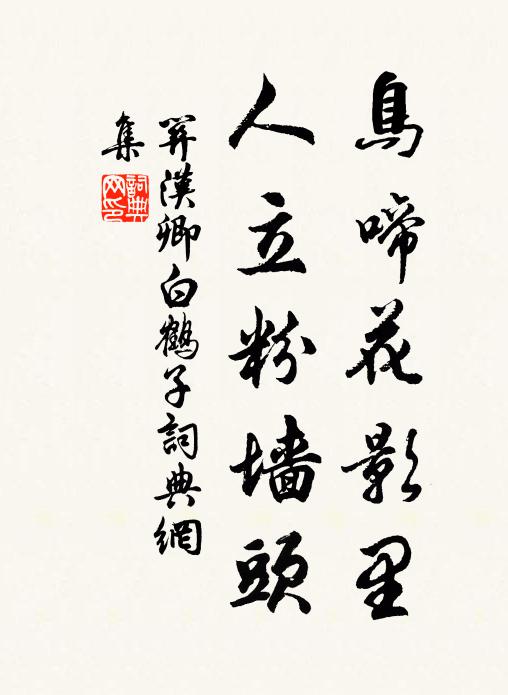 鳥啼花影里
人立粉墙頭
关漢卿白鶴子詞典網
集
詞典網印